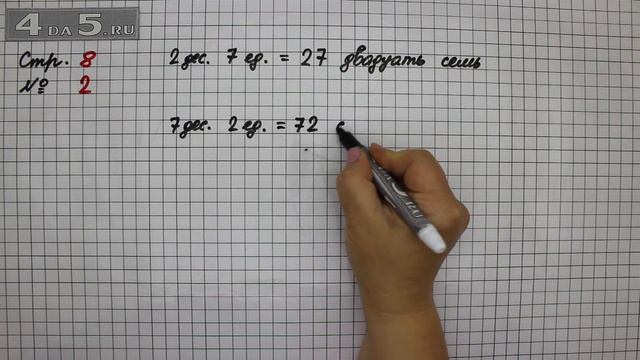 4 DA 5.RU
Стр. 8
№ 2
2 дес. 7 ед. = 27 двадцать семь
7 дес. 2 ед. = 72 с